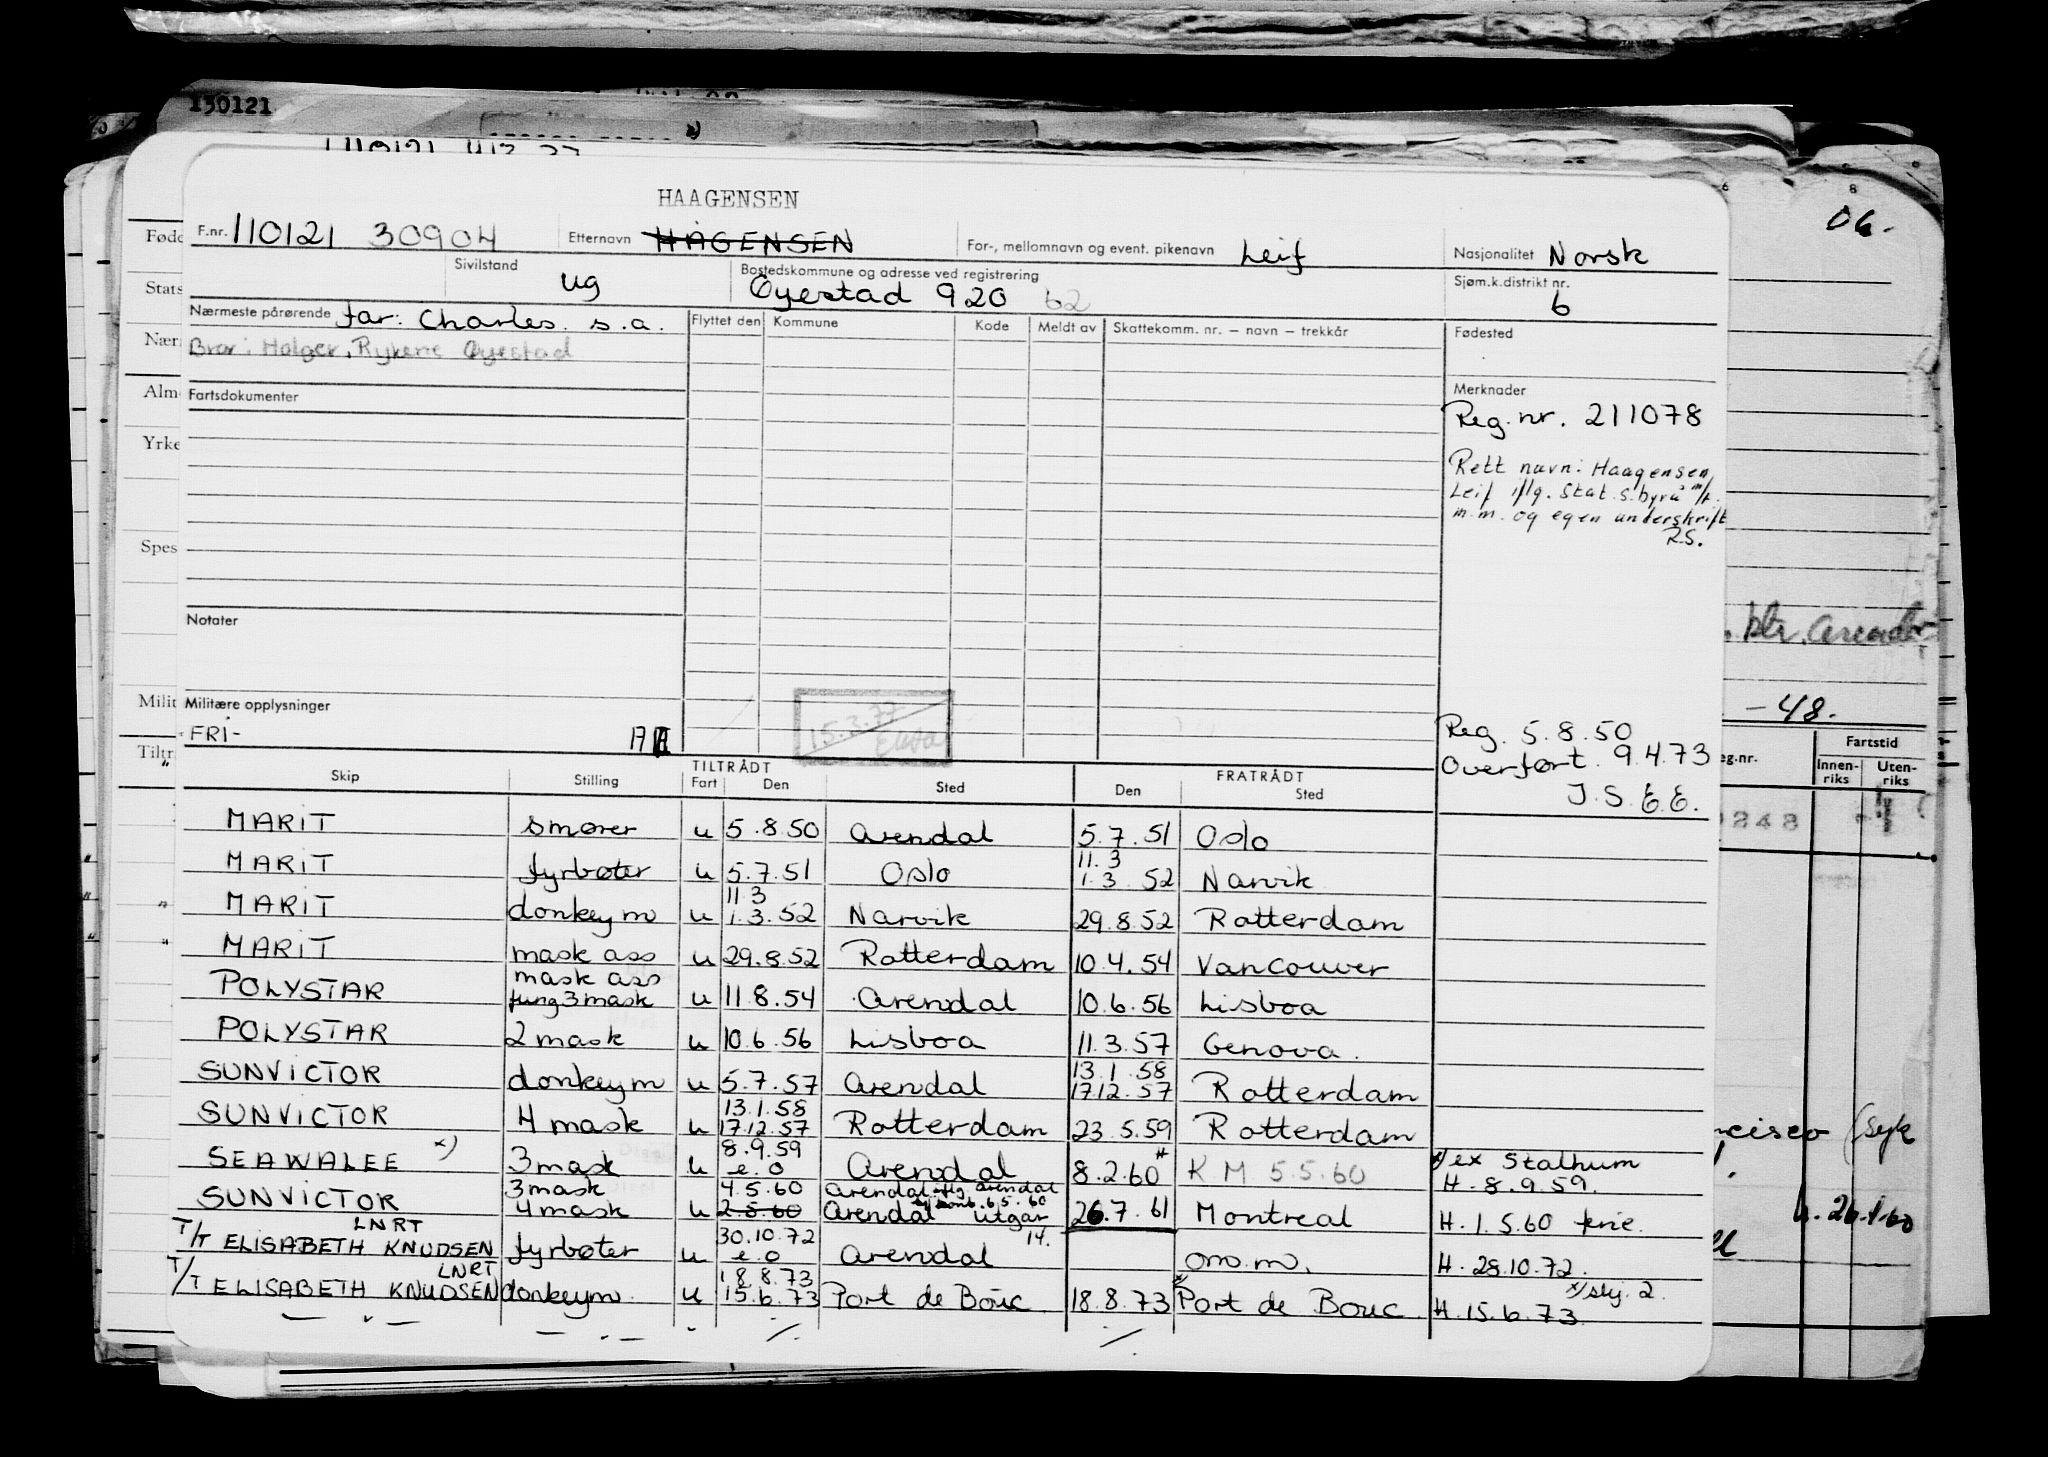 150121
HAAGENSEN
06.
F.nr. 110121 30904 Etternavn HAGENSEN For-, mellomnavn og event. pikenavn Leif Nasjonalitet Norsk
Sivilstand ug Bostedskommune og adresse ved registrering Øyestad 920 62 Sjøm.k.distrikt nr. 6
Nærmeste pårørende far: Charles. s.a. Flyttet den Kommune Kode Meldt av Skattekomm. nr. – navn – trekkår Fødested
Bror: Holger, Rykene Øyestad
Fartsdokumenter Merknader
Reg. nr. 211078
Rett navn: Haagensen,
Leif iflg. Stat. s. byrå m/f.
m.m. og egen underskrift
R.S.
Notater
Militære opplysninger
FRI-
15.3.77
Reg. 5.8.50
Overført. 9.4.73
J.S.E.E.
-48.
TILTRÅDT FRATRÅDT
Skip Stilling Fart Den Sted Den Sted
MARIT smører u 5.8.50 Arendal 5.7.51 Oslo
MARIT fyrbøter u 5.7.51 Oslo 11.3 1.3.52 Narvik
MARIT donkeym u 11.3 1.3.52 Narvik 29.8.52 Rotterdam
MARIT mask ass u 29.8.52 Rotterdam 10.4.54 Vancouver
POLYSTAR mask ass fung 3 mask u 11.8.54 Arendal 10.6.56 Lisboa
POLYSTAR 2 mask u 10.6.56 Lisboa 11.3.57 Genova.
SUNVICTOR donkeym u 5.7.57 Arendal 13.1.58 17.12.57 Rotterdam
SUNVICTOR 4 mask u 13.1.58 17.12.57 Rotterdam 23.5.59 Rotterdam
SEAWALEE x) 3 mask u 8.9.59 e.o Arendal 8.2.60 K M 5.5.60 x/ ex Stalheim H. 8.9.59.
SUNVICTOR 3 mask 4 mask u 4.5.60 2.5.60 Arendal Arendal utgår 26.7.61 Montreal H. 1.5.60 ferie.
T/T ELISABETH KNUDSEN LNRT fyrbøter u 30.10.72 e.o Arendal 14. om.m. H. 28.10.72.
T/T ELISABETH KNUDSEN LNRT donkeym. u 18.8.73 15.6.73 Port de Bouc 18.8.73 Port de Bouc H. 15.6.73 x/ skj. 2.
Føde
Stats
Nær
Alm
Yrke
Spes
Milit
Tiltr
Fartstid
Innen-
riks
Uten-
riks